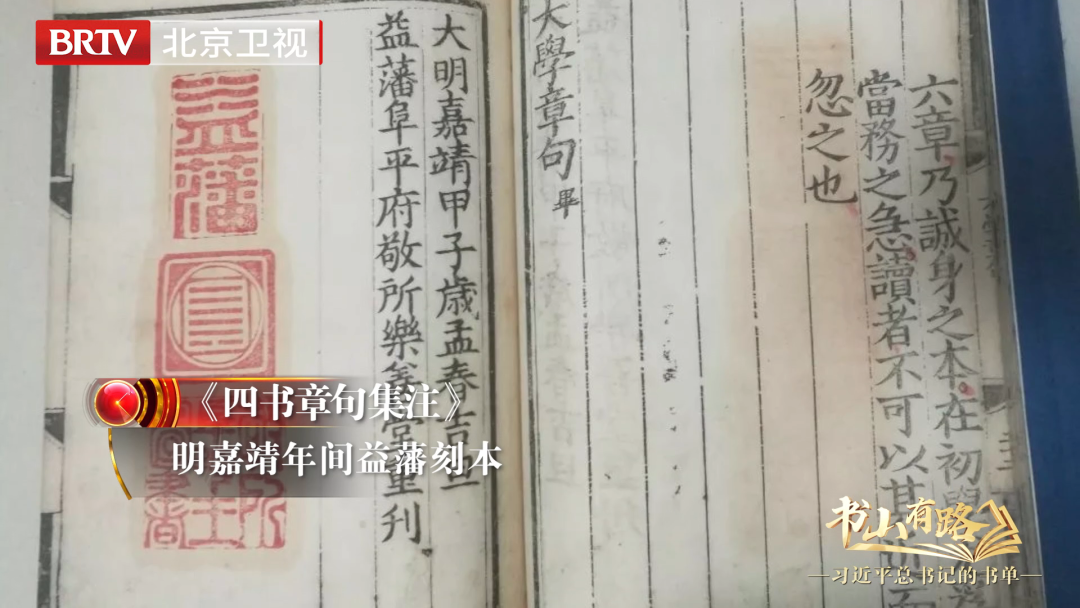 BRTV 北京卫视
六章乃誠身之本在初學
當務之急讀者不可以其
忽之也
大學章句 畢
大明嘉靖甲子歲孟春吉旦
益藩阜平府敬所樂善堂重刋
益藩
《四书章句集注》
明嘉靖年间益藩刻本
书山有路
习近平总书记的书单